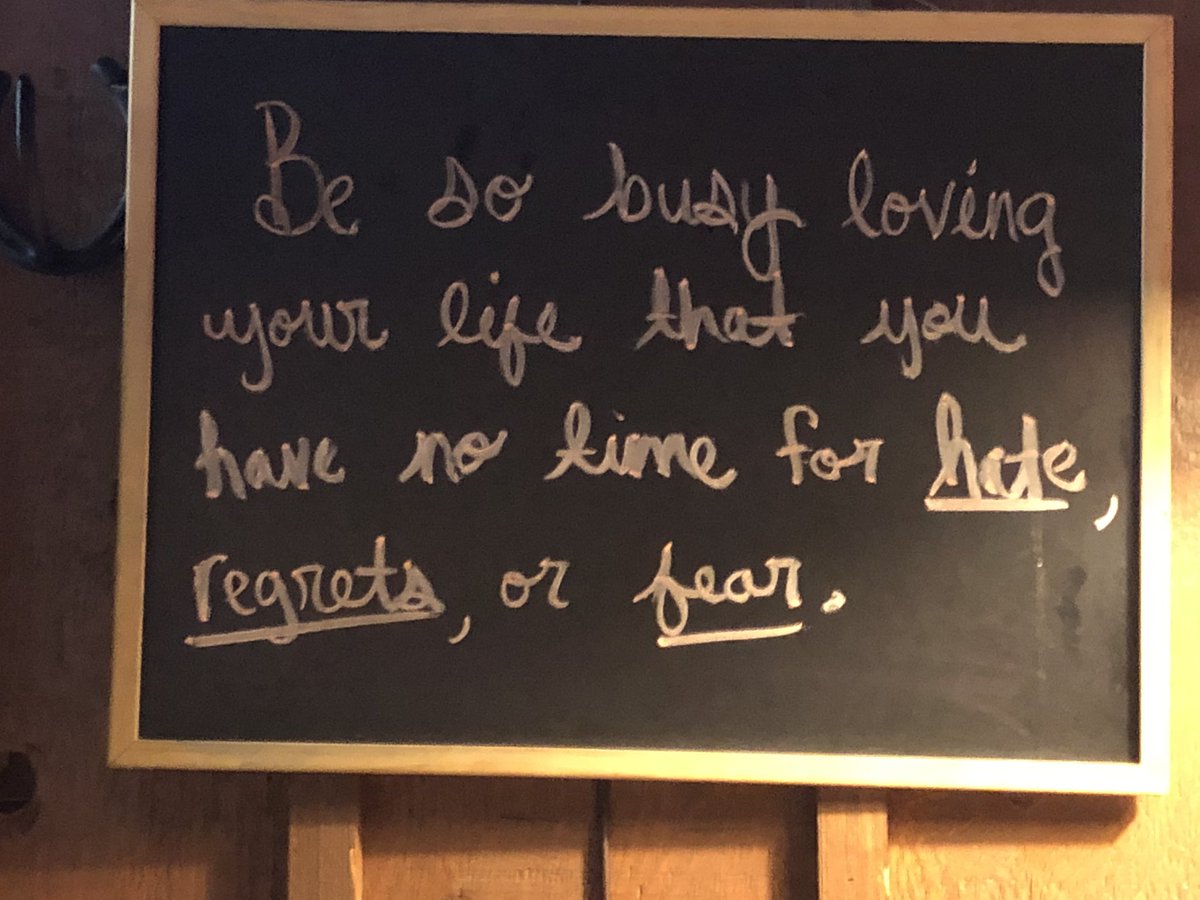 Be so busy loving
your life that you
have no time for hate,
regrets, or fear.